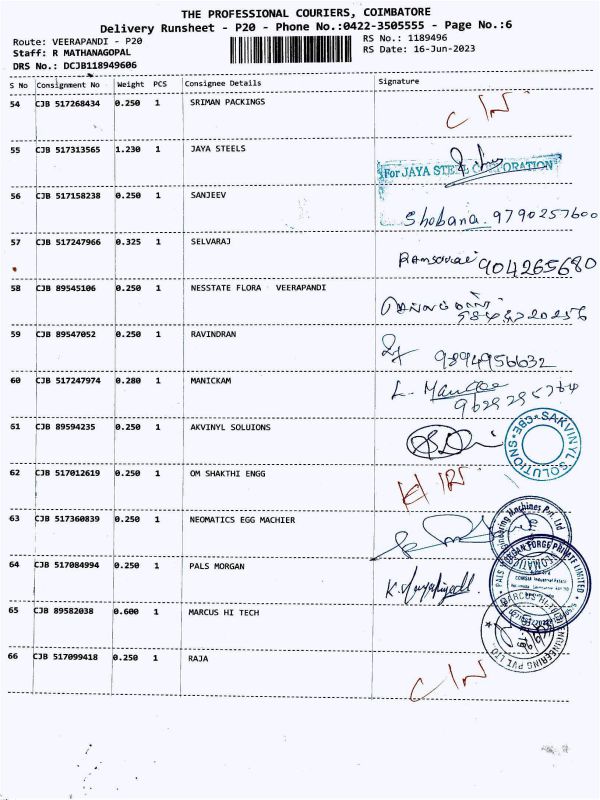 THE PROFESSIONAL COURIERS, COIMBATORE
Delivery Runsheet - P20 - Phone No.:0422-3505555 - Page No.:6
Route: VEERAPANDI - P20
Staff: R MATHANAGOPAL
DRS No.: DCJB118949606
RS No.: 1189496
RS Date: 16-Jun-2023
S No Consignment No Weight PCS Consignee Details Signature
54 CJB 517268434 0.250 1 SRIMAN PACKINGS
55 CJB 517313565 1.230 1 JAYA STEELS
For JAYA STEEL CORPORATION
56 CJB 517158238 0.250 1 SANJEEV
Shobana. 9790257600
57 CJB 517247966 0.325 1 SELVARAJ
904265680
58 CJB 89545106 0.250 1 NESSTATE FLORA VEERAPANDI
59 CJB 89547052 0.250 1 RAVINDRAN
9894956632
60 CJB 517247974 0.280 1 MANICKAM
61 CJB 89594235 0.250 1 AKVINYL SOLUIONS
SAKVINYL SOLUTIONS * CBE *
62 CJB 517012619 0.250 1 OM SHAKTHI ENGG
63 CJB 517360839 0.250 1 NEOMATICS EGG MACHIER
64 CJB 517084994 0.250 1 PALS MORGAN
PALS MORGAN FORGE PRIVATE LIMITED
65 CJB 89582038 0.600 1 MARCUS HI TECH
66 CJB 517099418 0.250 1 RAJA